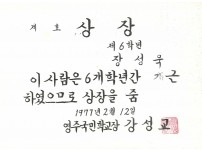 제 호 상장
제6학년
장성욱
이 사람은 6개학년간 개근
하였으므로 상장을 줌
1977년 2월 12일
영주국민학교장 강성교